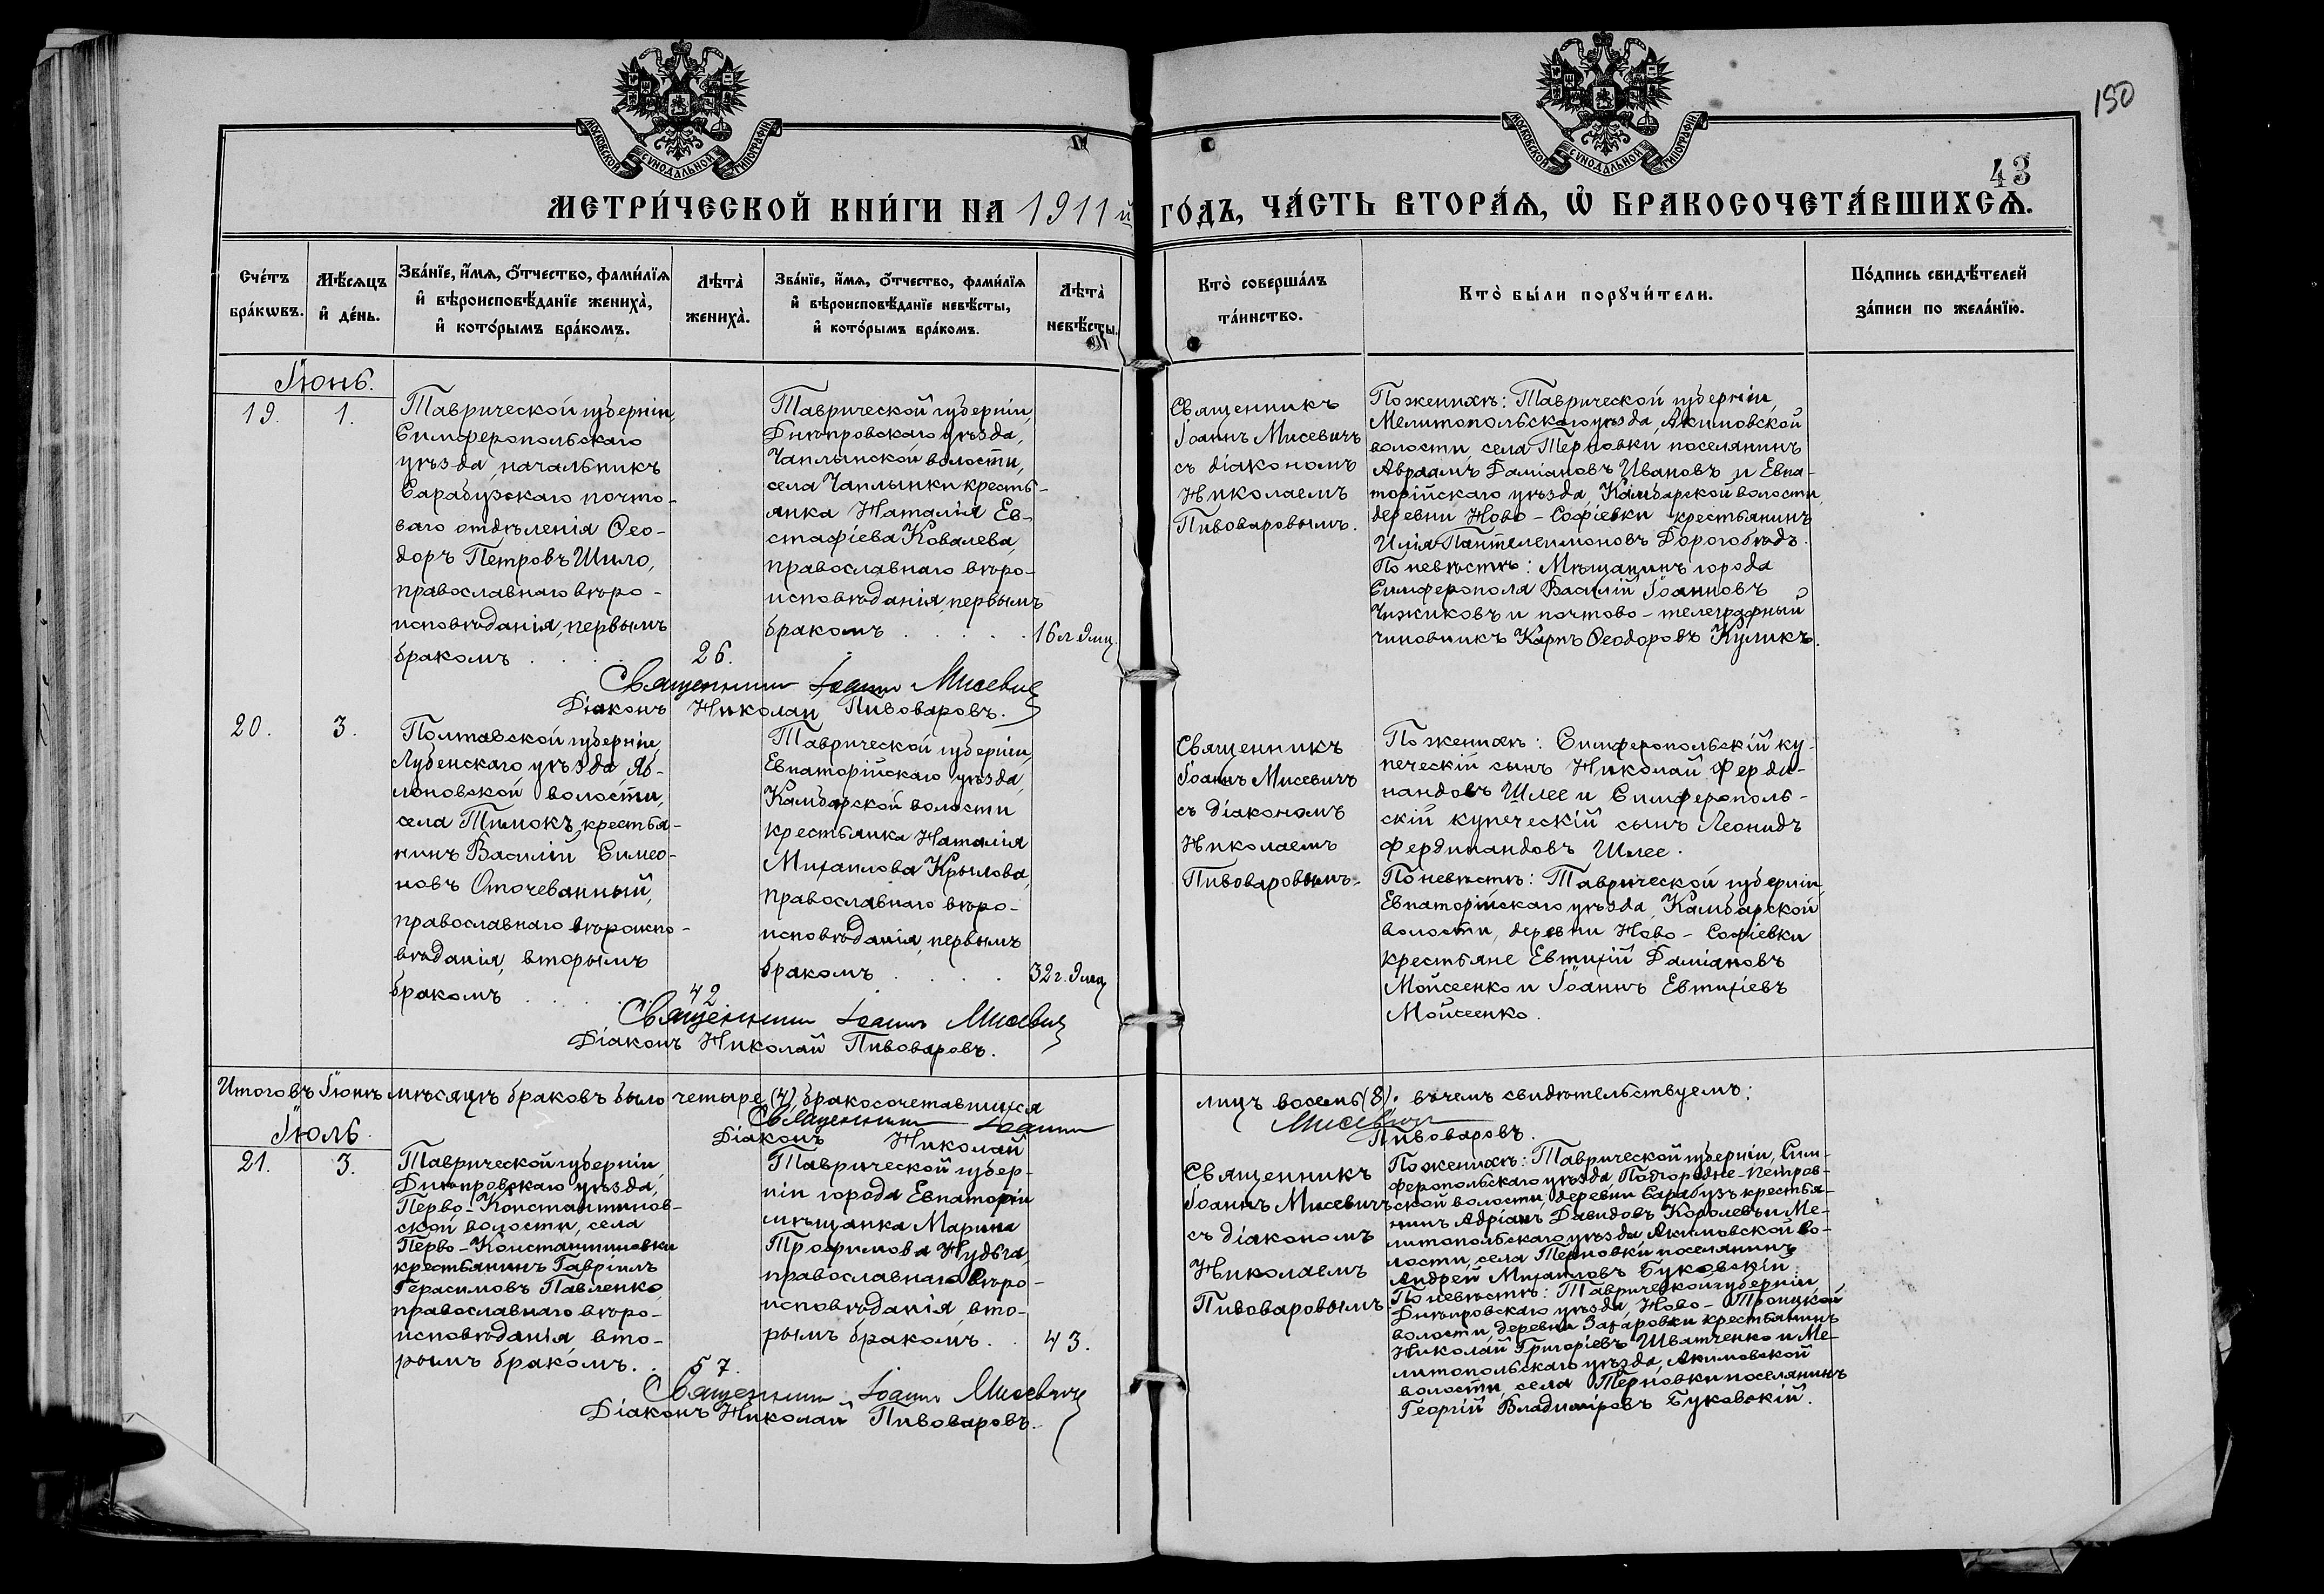 150
43
МОСКОВСКОЙ СѴНОДАЛЬНОЙ ТИПОГРАФІИ
МОСКОВСКОЙ СѴНОДАЛЬНОЙ ТИПОГРАФІИ
МЕТРИ́ЧЕСКОЙ КНИ́ГИ НА 1911 й ГО́ДЪ, ЧА́СТЬ ВТОРА́Ѧ, Ѡ҆ БРАКОСОЧЕТА́ВШИХСѦ.
Сче́тъ
бра́кѡвъ.
Мѣ́сѧцъ
и҆ де́нь.
Зва́нїе, и҆́мѧ, ѻ҆́тчество, фами́лїѧ
и҆ вѣроисповѣ́данїе жениха̀,
и҆ кото́рымъ бра́комъ.
Лѣта̀
жениха̀.
Зва́нїе, и҆́мѧ, ѻ҆́тчество, фами́лїѧ
и҆ вѣроисповѣ́данїе невѣ́сты,
и҆ кото́рымъ бра́комъ.
Лѣта̀
невѣ́сты.
Кто̀ соверша́лъ
та́инство.
Кто̀ бы́ли порꙋчи́тели.
По́дпись свидѣ́телей
за́писи по жела́нїю.
Іюнь.
19.
1.
Таврической губерніи,
Симферопольскаго
уѣзда, начальникъ
Сарабузскаго почто-
ваго отдѣленія Ѳео-
доръ Петровъ Шило,
православнаго вѣро-
исповѣданія, первымъ
бракомъ . . . .
26.
Таврической губерніи,
Днѣпровскаго уѣзда,
Чаплынской волости,
села Чаплынки кресть-
янка Наталія Ев-
стафіева Ковалева,
православнаго вѣро-
исповѣданія, первымъ
бракомъ . . . .
16 л. 9 мц.
Священникъ
Іоаннъ Мисевичъ
съ діакономъ
Николаемъ
Пивоваровымъ.
По женихѣ: Таврической губерніи,
Мелитопольскаго уѣзда, Акимовской
волости, села Терновки поселянинъ
Авраамъ Даміановъ Ивановъ и Евпа-
торійскаго уѣзда, Камбарской волости,
деревни Ново-Софіевки крестьянинъ
Илія Пантелеимоновъ Дорогобѣдъ.
По невѣстѣ: Мѣщанинъ города
Симферополя Василій Іоанновъ
Чижиковъ и почтово-телеграфный
чиновникъ Карпъ Ѳеодоровъ Куликъ.
Священникъ Іоаннъ Мисевичъ
Діаконъ Николай Пивоваровъ.
20.
3.
Полтавской губерніи,
Лубенскаго уѣзда, Яб-
лоновской волости,
села Тимокъ, крестья-
нинъ Василій Симео-
новъ Оточеванный,
православнаго вѣроиспо-
вѣданія, вторымъ
бракомъ . . . .
42
Таврической губерніи,
Евпаторійскаго уѣзда,
Камбарской волости
крестьянка Наталія
Михаилова Крылова,
православнаго вѣро-
исповѣданія, первымъ
бракомъ . . . .
32 г. 9 мц
Священникъ
Іоаннъ Мисевичъ
съ діакономъ
Николаемъ
Пивоваровымъ.
По женихѣ: Симферопольскій ку-
печескій сынъ Николай Ферди-
нандовъ Шлее и Симферополь-
скій купеческій сынъ Леонидъ
Фердинандовъ Шлее.
По невѣстѣ: Таврической губерніи,
Евпаторійскаго уѣзда, Камбарской
волости, деревни Ново-Софіевки
крестьяне Евтихій Даміановъ
Мойсеенко и Іоаннъ Евтихіевъ
Мойсеенко.
Священникъ Іоаннъ Мисевичъ
Діаконъ Николай Пивоваровъ.
Итого въ Іюнѣ мѣсяцѣ браковъ было четыре (4), бракосочетавшихся лицъ восемь (8). въ чемъ свидѣтельствуемъ:
Священникъ Іоаннъ Мисевичъ
Діаконъ Николай Пивоваровъ.
Іюль.
21.
3.
Таврической губерніи
Днѣпровскаго уѣзда,
Перво-Константинов-
ской волости, села
Перво-Константиновки
крестьянинъ Гавріилъ
Герасимовъ Павленко,
православнаго вѣро-
исповѣданія, вто-
рымъ бракомъ. .
57.
Таврической губер-
ніи города Евпаторіи
мѣщанка Марина
Трофимова Нудьга,
православнаго вѣро-
исповѣданія, вто-
рымъ бракомъ. .
43.
Священникъ
Іоаннъ Мисевичъ
съ діакономъ
Николаемъ
Пивоваровымъ
По женихѣ: Таврической губерніи, Сим-
феропольскаго уѣзда, Подгородне-Петров-
ской волости, деревни Сарабузъ крестья-
нинъ Адріанъ Давидовъ Королевъ и Ме-
литопольскаго уѣзда, Акимовской во-
лости, села Терновки поселянинъ
Андрей Михаиловъ Буковскій.
По невѣстѣ: Таврической губерніи,
Днѣпровскаго уѣзда, Ново-Троицкой
волости, деревни Захаровки крестьянинъ
Николай Григоріевъ Иватченко и Ме-
литопольскаго уѣзда, Акимовской
волости, села Терновки поселянинъ
Георгій Владиміровъ Буковскій.
Священникъ Іоаннъ Мисевичъ
Діаконъ Николай Пивоваровъ.